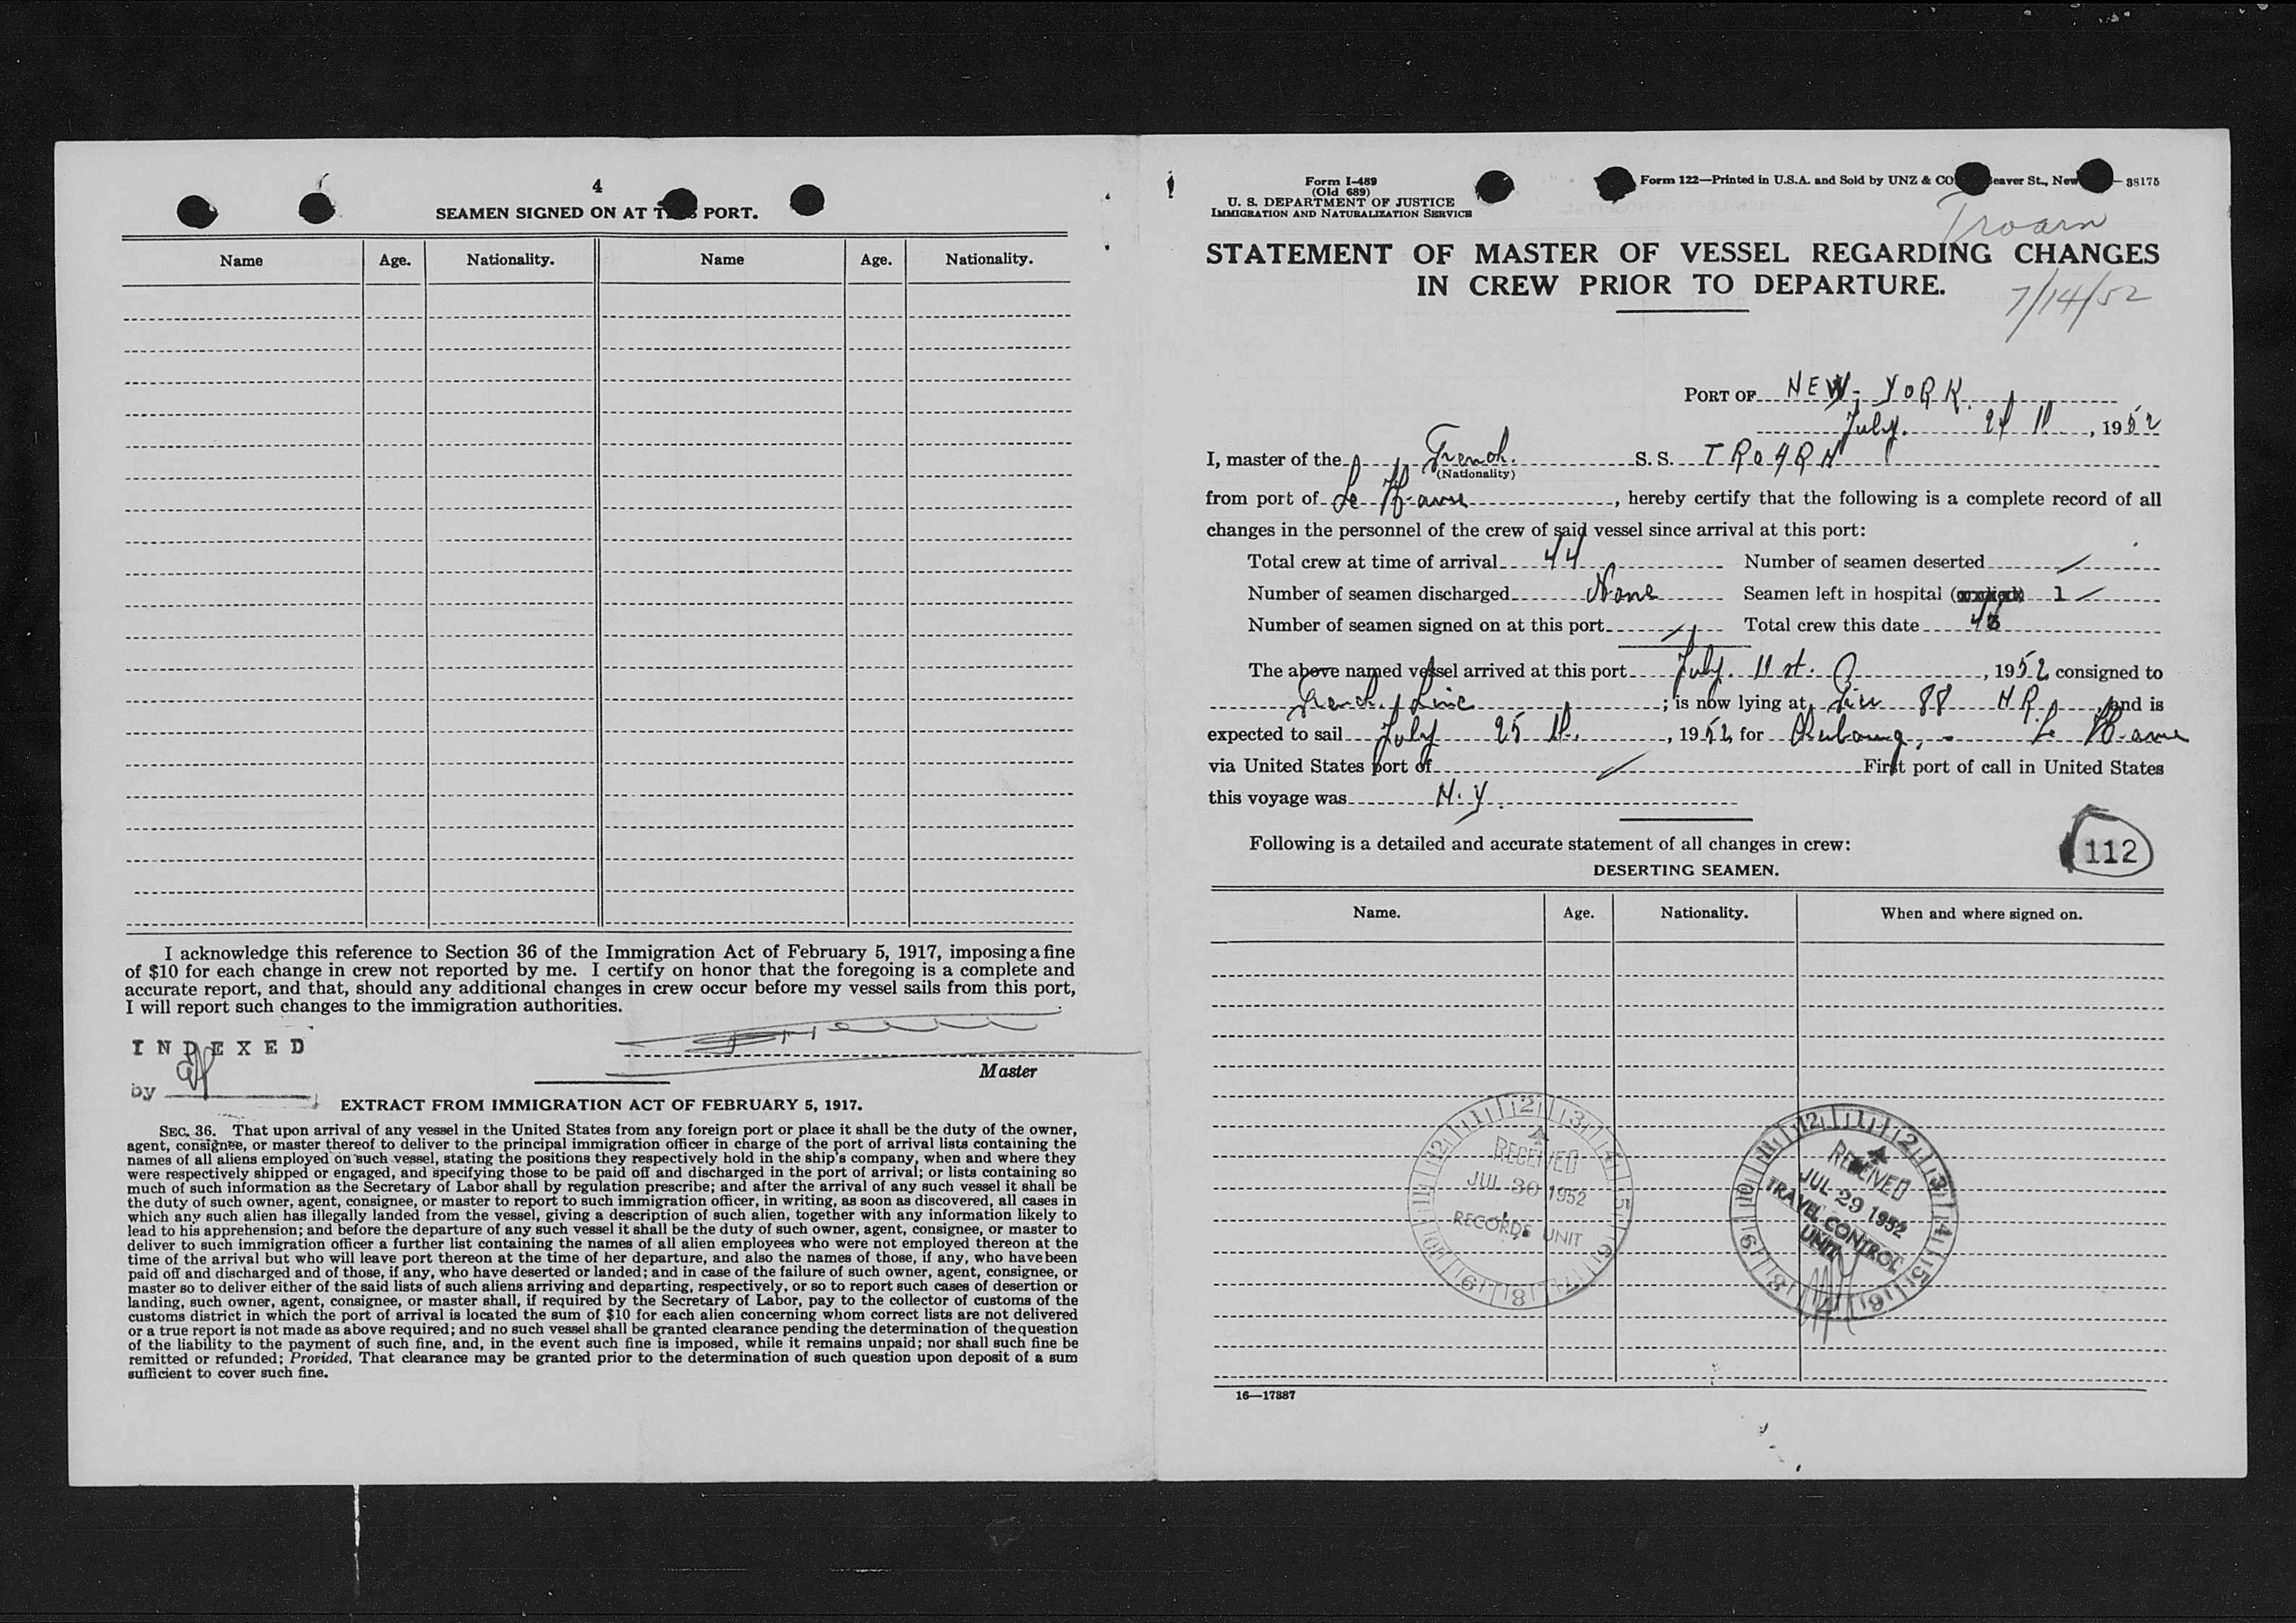 4
SEAMEN SIGNED ON AT PORT.
Name Age. Nationality. Name Age. Nationality.
I acknowledge this reference to Section 36 of the Immigration Act of February 5, 1917, imposing a fine
of $10 for each change in crew not reported by me. I certify on honor that the foregoing is a complete and
accurate report, and that, should any additional changes in crew occur before my vessel sails from this port,
I will report such changes to the immigration authorities.
INDEXED
by
Master
EXTRACT FROM IMMIGRATION ACT OF FEBRUARY 5, 1917.
SEC. 36. That upon arrival of any vessel in the United States from any foreign port or place it shall be the duty of the owner,
agent, consignee, or master thereof to deliver to the principal immigration officer in charge of the port of arrival lists containing the
names of all aliens employed on such vessel, stating the positions they respectively hold in the ship's company, when and where they
were respectively shipped or engaged, and specifying those to be paid off and discharged in the port of arrival; or lists containing so
much of such information as the Secretary of Labor shall by regulation prescribe; and after the arrival of any such vessel it shall be
the duty of such owner, agent, consignee, or master to report to such immigration officer, in writing, as soon as discovered, all cases in
which any such alien has illegally landed from the vessel, giving a description of such alien, together with any information likely to
lead to his apprehension; and before the departure of any such vessel it shall be the duty of such owner, agent, consignee, or master to
deliver to such immigration officer a further list containing the names of all alien employees who were not employed thereon at the
time of the arrival but who will leave port thereon at the time of her departure, and also the names of those, if any, who have been
paid off and discharged and of those, if any, who have deserted or landed; and in case of the failure of such owner, agent, consignee, or
master so to deliver either of the said lists of such aliens arriving and departing, respectively, or so to report such cases of desertion or
landing, such owner, agent, consignee, or master shall, if required by the Secretary of Labor, pay to the collector of customs of the
customs district in which the port of arrival is located the sum of $10 for each alien concerning whom correct lists are not delivered
or a true report is not made as above required; and no such vessel shall be granted clearance pending the determination of the question
of the liability to the payment of such fine, and, in the event such fine is imposed, while it remains unpaid; nor shall such fine be
remitted or refunded; Provided, That clearance may be granted prior to the determination of such question upon deposit of a sum
sufficient to cover such fine.
Form I-489
(Old 689)
U. S. DEPARTMENT OF JUSTICE
IMMIGRATION AND NATURALIZATION SERVICE
Form 122—Printed in U.S.A. and Sold by UNZ & CO St., New — 38175
Troarn
STATEMENT OF MASTER OF VESSEL REGARDING CHANGES
IN CREW PRIOR TO DEPARTURE.
7/14/52
PORT OF NEW-YORK.
July. 24 th, 1952
I, master of the French. S. S. TROARN
(Nationality)
from port of Le Havre, hereby certify that the following is a complete record of all
changes in the personnel of the crew of said vessel since arrival at this port:
Total crew at time of arrival 44 Number of seamen deserted
Number of seamen discharged None Seamen left in hospital 1
Number of seamen signed on at this port Total crew this date 43
The above named vessel arrived at this port July. 11 st., 1952 consigned to
French Line; is now lying at Pier 88 N R, and is
expected to sail July 25 th., 1952, for Cherbourg, - Le Havre
via United States port of First port of call in United States
this voyage was N. Y.
Following is a detailed and accurate statement of all changes in crew:
112
DESERTING SEAMEN.
Name. Age. Nationality. When and where signed on.
RECEIVED
JUL 30 1952
RECORDS UNIT
RECEIVED
JUL 29 1952
TRAVEL CONTROL
UNIT
16—17887